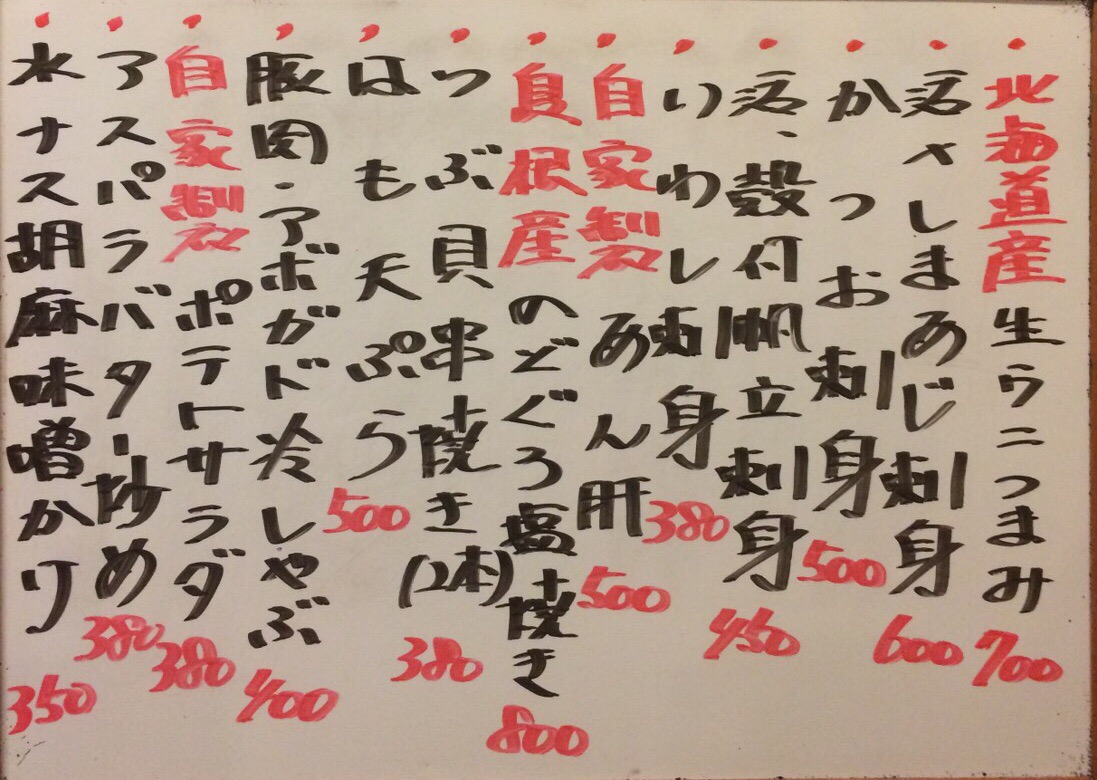 ・北海道産生ウニつまみ 700
・活〆しまあじ刺身 600
・かつお刺身 500
・活、殻付帆立刺身 450
・いわし刺身 380
・自家製あん肝 500
・島根産のどぐろ塩焼き 800
・つぶ貝串焼き(2本) 380
・はも天ぷら 500
・豚肉・アボガド冷しゃぶ 400
・自家製ポテトサラダ 380
・アスパラバター炒め 380
・水ナス胡麻味噌かけ 350